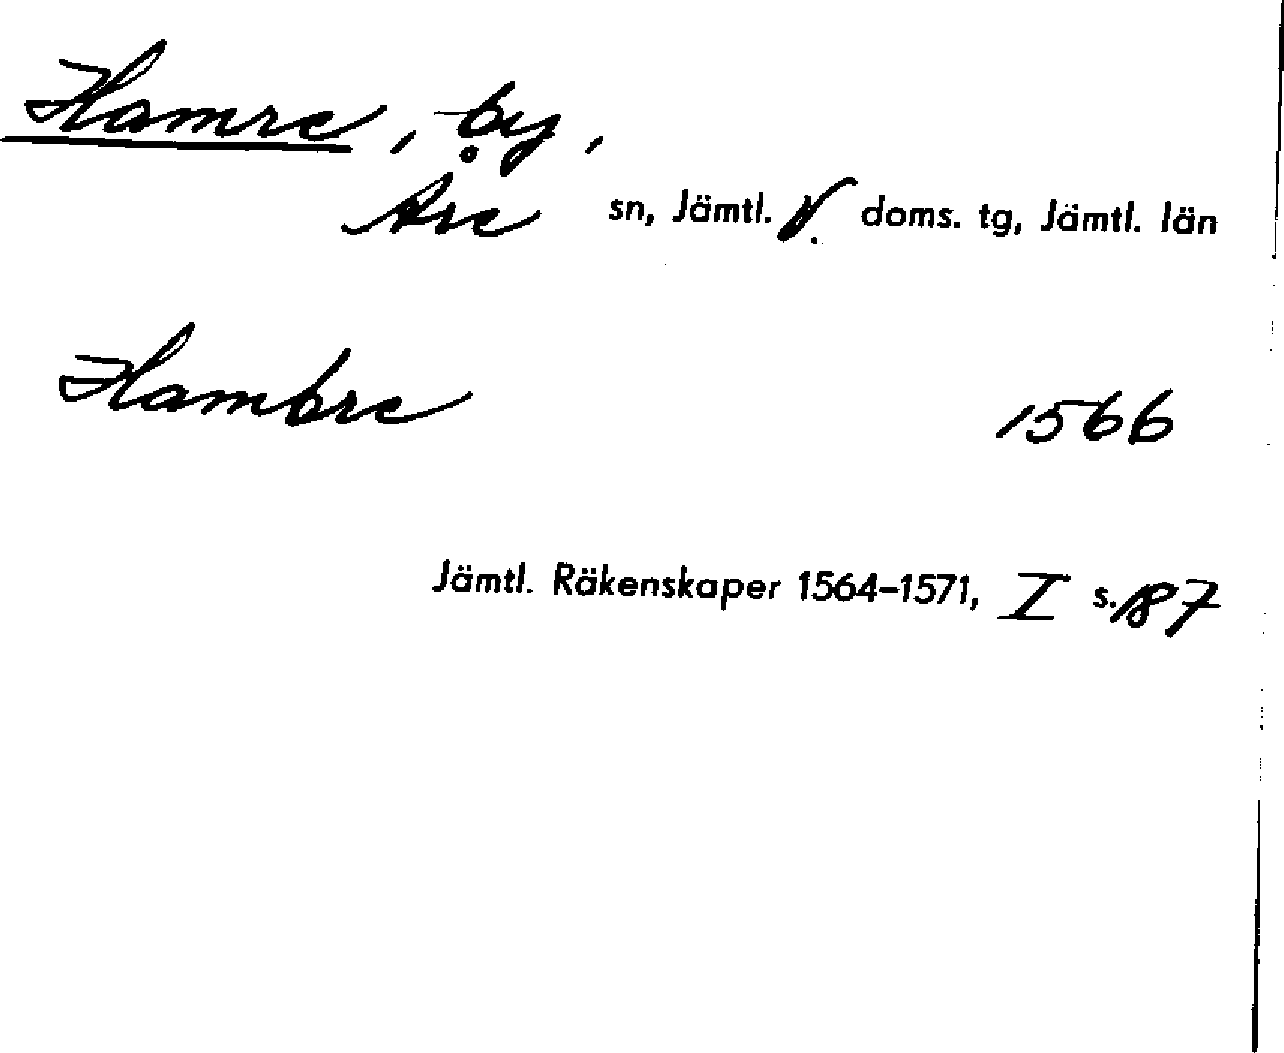 Hamre, by,
Åre sn, Jämtl. V. doms. tg, Jämtl. län
Hambre 1566
Jämtl. Räkenskaper 1564-1571, I s. 187